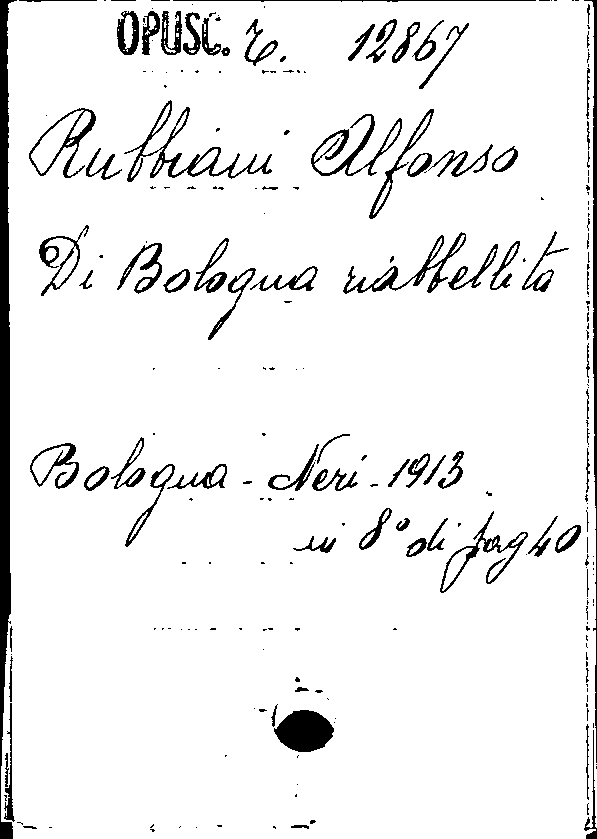 OPUSC. C. 12867
Rubbiani Alfonso
Di Bologna riabbellita
Bologna - Neri - 1913
in 8° di pag 40